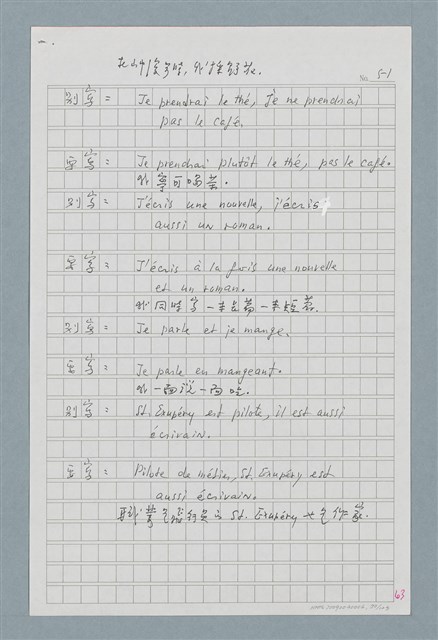 一.
No. 5-1
別寫: Je prendrai le thé, je ne prendrai
pas le café.
要寫: Je prendrai plutôt le thé, pas le café.
我寧可喝茶.
別寫: J'écris une nouvelle, j'écris
aussi un roman.
要寫: J'écris à la fois une nouvelle
et un roman.
我同時寫一 長篇 一 短篇.
別寫: Je parle et je mange.
要寫: Je parle en mangeant.
我一面說一面吃.
別寫: St. Exupéry est pilote, il est aussi
écrivain.
要寫: Pilote de métier, St. Exupéry est
aussi écrivain.
St. Exupéry 也是作家.
63